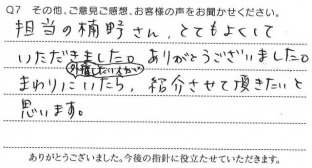 Q7 その他、ご意見ご感想、お客様の声をお聞かせください。
担当の楠野さん、とてもよくして
いただきました。ありがとうございました。
外構したい人が
まわりにいたら、紹介させて頂きたいと
思います。
ありがとうございました。今後の指針に役立たせていただきます。